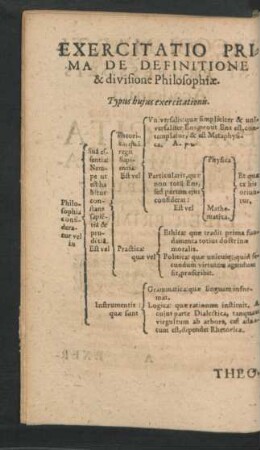 EXERCITATIO PRI-
MA DE DEFINITIONE
& divisione Philosophiæ.
Typus hujus exercitationis.
Philo-
sophia
consi-
deratur vel
in
Sui es-
sentia:
Est vel
Theore-
sapi-
entia:
Est vel
Universalis: quæ simpliciter & uni-
versaliter
Ens est, con-
templatur, & est Metaphysi-
ca.
Particularis, quæ
non totū Ens,
sed partem ejus
considerat:
Est vel
Physica
Mathe-
matica.
Practica:
quæ vel
Ethica: quæ tradit prima fun-
damenta totius doctrinæ
moralis.
Politica: quæ
secundum virtutem agendum
sit, præscribit.
Instrumentis
quæ sunt
Grammatica: quæ linguam infor-
mat.
Logica: quæ rationem instituit. A
cujus parte Dialectica, tanquam
virgultum ab arbore,
est, dependet Rhetorica.
THEO-